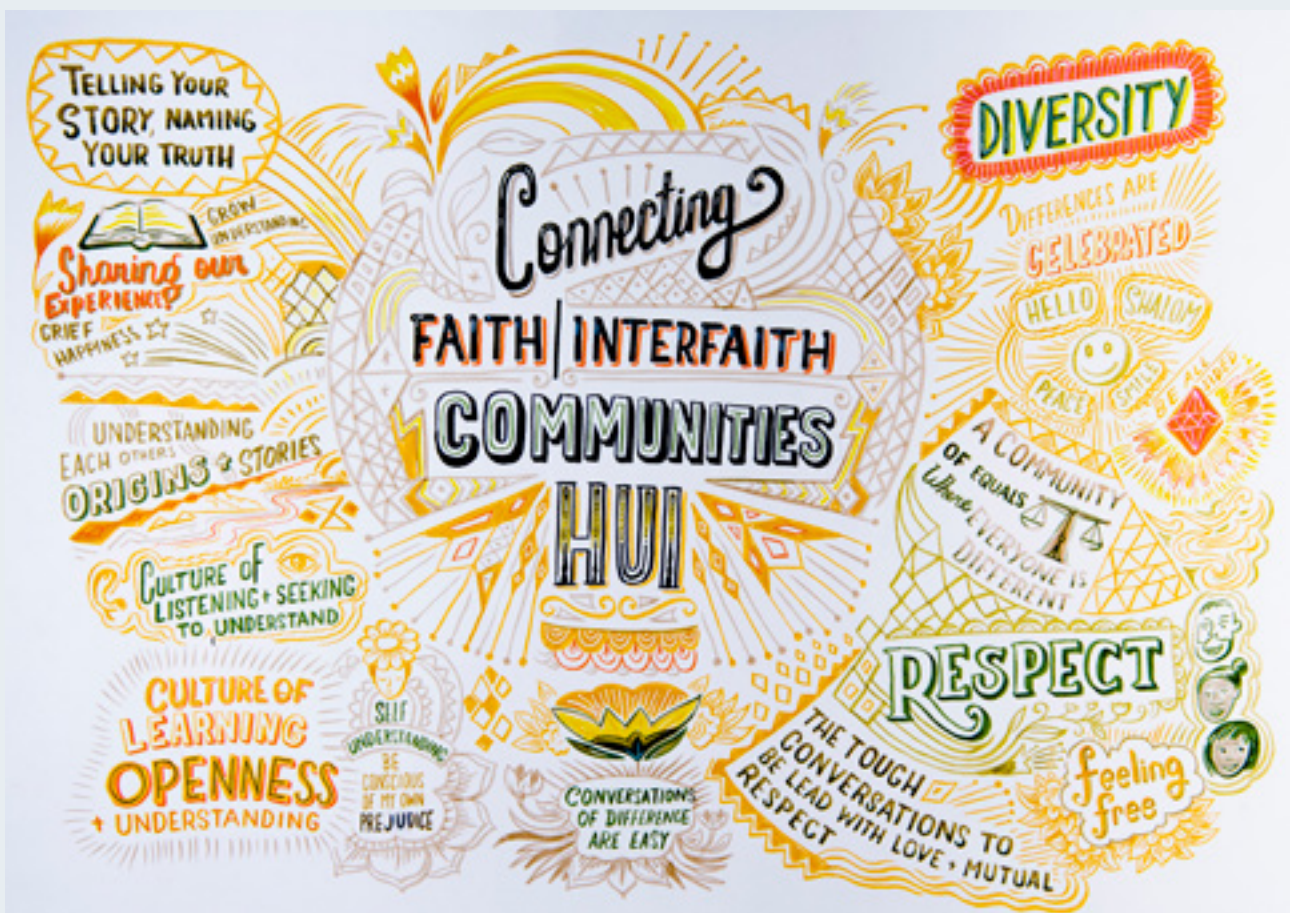 TELLING YOUR
STORY, NAMING
YOUR TRUTH
GROW
UNDERSTANDING
Sharing our
EXPERIENCE?
GRIEF
HAPPINESS
UNDERSTANDING
EACH OTHERS
ORIGINS + STORIES
CULTURE OF
LISTENING + SEEKING
TO UNDERSTAND
CULTURE OF
LEARNING
OPENNESS
+ UNDERSTANDING
SELF
UNDERSTANDING
BE
CONSCIOUS
OF MY OWN
PREJUDICE
Connecting
FAITH/INTERFAITH
COMMUNITIES
HUI
CONVERSATIONS
OF DIFFERENCE
ARE EASY
DIVERSITY
DIFFERENCES ARE
CELEBRATED
HELLO
SHALOM
PEACE
SMILE
BE ALL
A COMMUNITY
OF EQUALS
Where EVERYONE IS
DIFFERENT
RESPECT
THE TOUGH
CONVERSATIONS TO
BE LEAD WITH LOVE + MUTUAL
RESPECT
feeling
free